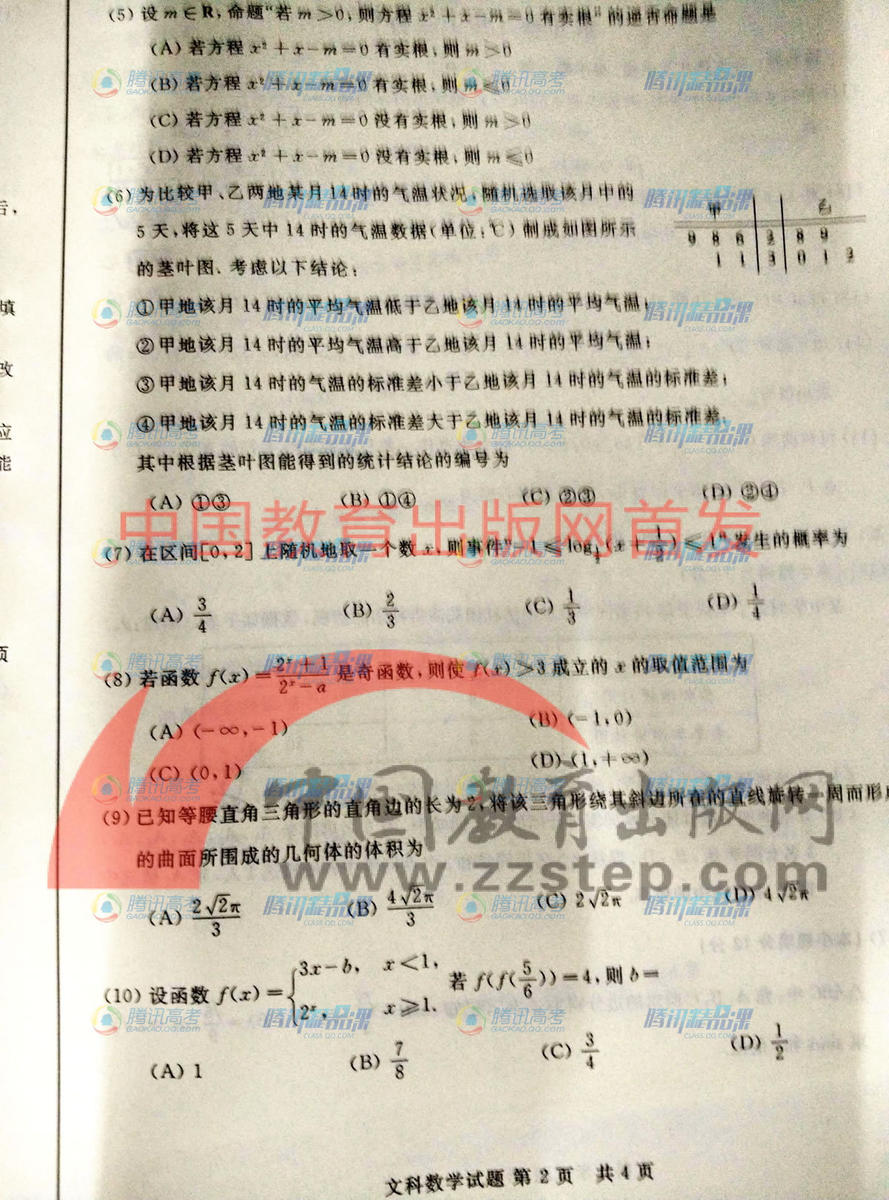 (5) 设 m∈R, 命题“若 m>0, 则方程 x²+x-m=0 有实根”的逆否命题是
(A) 若方程 x²+x-m=0 有实根, 则 m>0
(B) 若方程 x²+x-m=0 有实根, 则 m≤0
(C) 若方程 x²+x-m=0 没有实根, 则 m>0
(D) 若方程 x²+x-m=0 没有实根, 则 m≤0
(6) 为比较甲、乙两地某月14时的气温状况, 随机选取该月中的
5天, 将这5天中14时的气温数据(单位:℃)制成如图所示
的茎叶图. 考虑以下结论:
甲 乙
9 8 6 2 8 9
1 1 3 0 1 2
①甲地该月14时的平均气温低于乙地该月14时的平均气温;
②甲地该月14时的平均气温高于乙地该月14时的平均气温;
③甲地该月14时的气温的标准差小于乙地该月14时的气温的标准差;
④甲地该月14时的气温的标准差大于乙地该月14时的气温的标准差.
其中根据茎叶图能得到的统计结论的编号为
(A) ①③ (B) ①④ (C) ②③ (D) ②④
中国教育出版网首发
(7) 在区间[0,2]上随机地取一个数 x, 则事件“-1≤log_{1/2}(x+1/2)≤1”发生的概率为
(A) 3/4 (B) 2/3 (C) 1/3 (D) 1/4
(8) 若函数 f(x)=(2ˣ+1)/(2ˣ-a) 是奇函数, 则使 f(x)>3 成立的 x 的取值范围为
(A) (-∞,-1) (B) (-1,0)
(C) (0,1) (D) (1,+∞)
中国教育出版网
(9) 已知等腰直角三角形的直角边的长为2, 将该三角形绕其斜边所在的直线旋转一周而形成
的曲面所围成的几何体的体积为
www.zzstep.com
(A) 2√2π/3 (B) 4√2π/3 (C) 2√2π (D) 4√2π
(10) 设函数 f(x)={3x-b, x<1, 2ˣ, x≥1. 若 f(f(5/6))=4, 则 b=
(A) 1 (B) 7/8 (C) 3/4 (D) 1/2
文科数学试题 第2页 共4页
腾讯高考
GAOKAO.QQ.COM
腾讯精品课
CLASS.QQ.COM
填
改
应
能
项